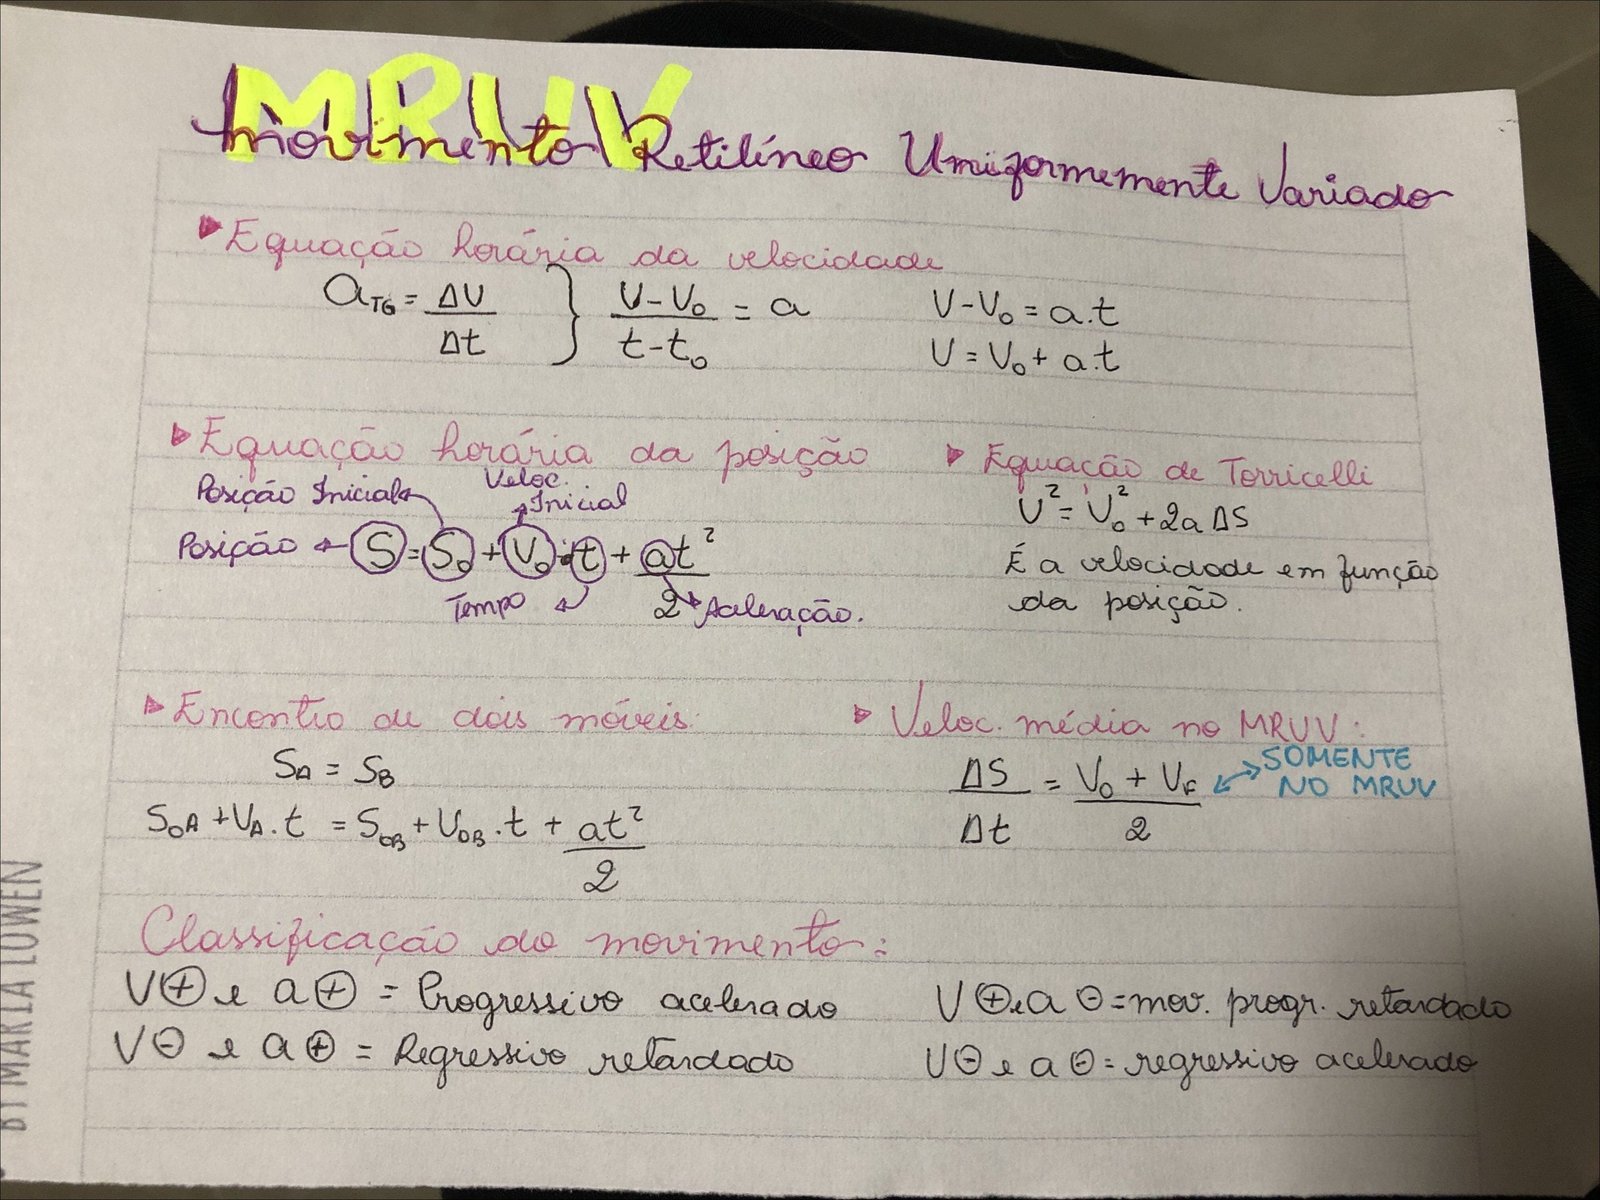 MRUV
Movimento Retilíneo Uniformemente Variado
Equação horária da velocidade
a_TG = ΔV/Δt } (V-V₀)/(t-t₀) = a
V-V₀ = a.t
V = V₀ + a.t
Equação horária da posição
Posição Inicial
Veloc. Inicial
Posição ← S = S₀ + V₀.t + at²/2
Tempo
Aceleração.
Equação de Torricelli
V² = V₀² + 2a ΔS
É a velocidade em função
da posição.
Encontro de dois móveis:
S_A = S_B
S₀A + V_A.t = S₀B + V₀B.t + at²/2
Veloc. média no MRUV:
ΔS/Δt = (V₀ + V_F)/2
SOMENTE
NO MRUV
Classificação do movimento:
V⊕ e a⊕ = Progressivo acelerado
V⊖ e a⊕ = Regressivo retardado
V⊕ e a⊖ = mov. progr. retardado
V⊖ e a⊖ = regressivo acelerado
BY MARIA LOWEN